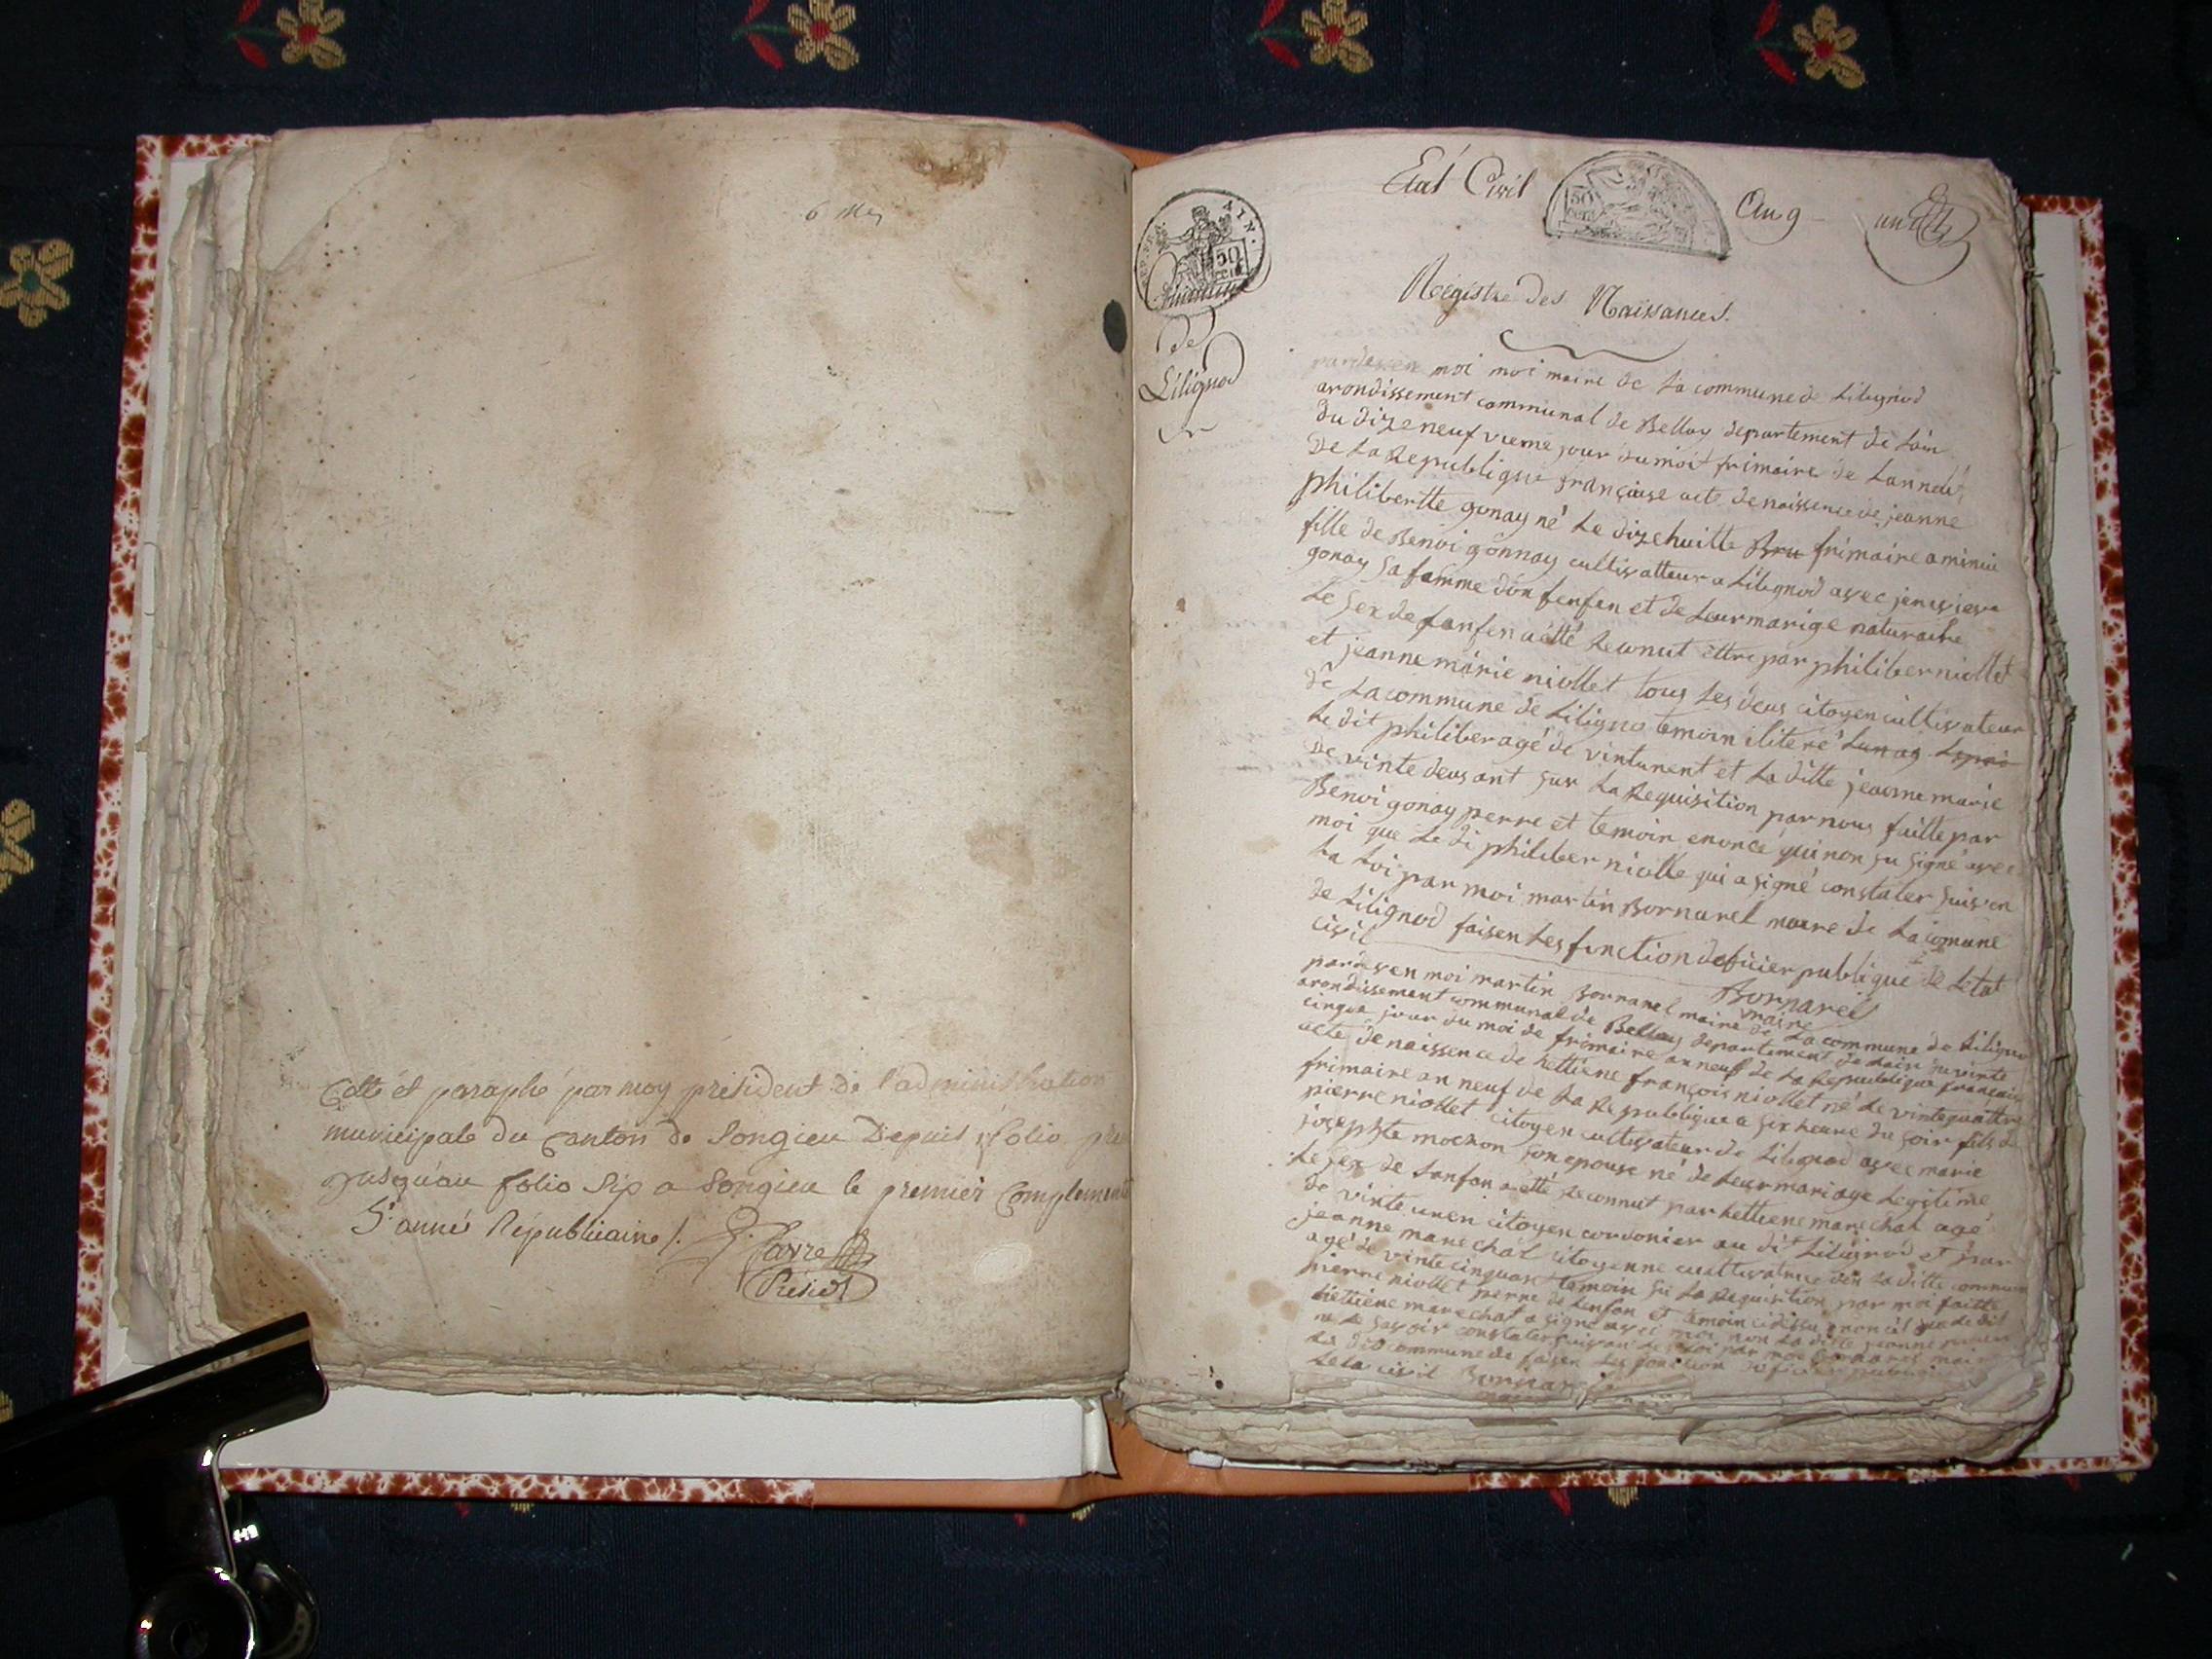 6
Cotté et paraphé par moy président de l'administration
municipale du Canton de Songieu Depuis folio
Jusqu'au folio Six a Songieu le premier Complement
5e année Republicaine
Presidt
Etat Civil
50
REP. FRA. AIN.
50
Commune
de
Lilignod
Registre des Naissances.
pardeven moi moi maire de La commune de Lilignod
arondissement communal de Belley departement de Lain
Du dizeneuf vieme jour du mois frimaire de Lanneuf
De La Republique française acte de naissence de jeanne
philibertte gonay né Le dizehuitte Bru frimaire a minui
fille de Benoi gonnay cultivatteur a Lilignod avec
gonay Sa famme don fenfen et de Leur marige
Le Sex de fanfen a etté Reconnut ettre par philiber niollet
et jeanne marie niollet tous Les deus citoyen cultivateur
de La commune de Liligno temoin
Le dit philiber agé de vintunent et La ditte jeanne marie
De vinte deus ant Sur La Requisition par nous faitte par
Benoi gonay perre et temoin enoncé qui non Su Signé avec
moi que Le di philiber niolle qui a Signé constater Suiven
La Loi par moi martin Bornarel maire de La comune
de Lilignod faisen Les fonction doficier publique de Létat
civil
Bornarel
maire
pardeven moi martin Bornarel maire de La commune de Lilignod
arondissement communal de Belley departement de Lain du vinte
cinque jour du moi de frimaire an neuf de La Republique française
acte de naissence de hettiene françois niollet né Le vintequattre
frimaire an neuf de La Republique a Six heure du Soir fils de
pierre niollet citoyen cultivateur de Lilignod avec marie
josephte mochon Son epouse né de Leur mariage Legitime
Le Sex de Lanfan a etté Reconnut par hettiene marechal agé
de vinte unen citoyen cordonier au dit Lilignod et par
jeanne marechal citoyenne cultivatrice den La ditte commune
agé de vinte cinquant temoin Su La Requisition par moi faitte
pierre niollet perre de Lenfan et temoin cidessu
hettiene marechal a Signé avec moi non La ditte jeanne
ne Le Savoir constater Suivan La Loi par moi Bornarel maire
de La dit commune de faisen Les fonction doficier publique
Leta civil Bornarel